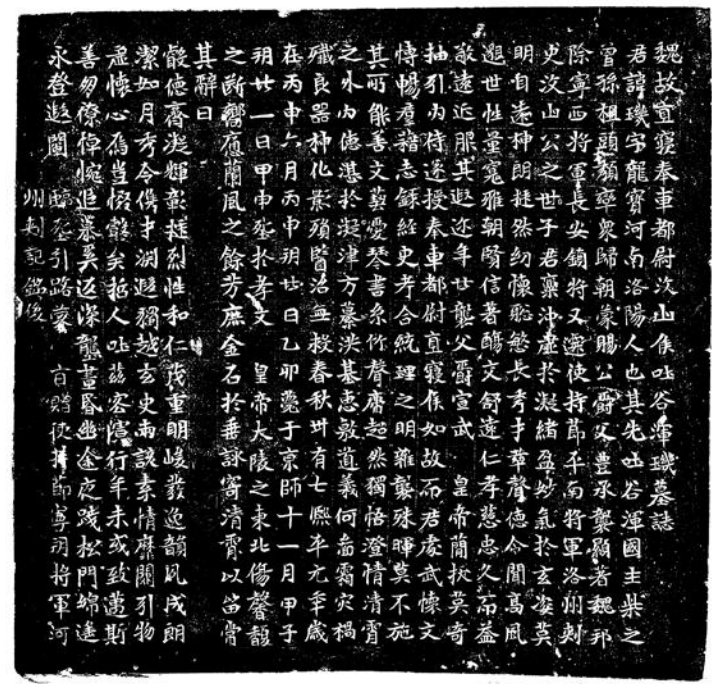 魏故直寢奉車都尉汶山侯吐谷渾璣墓誌
君諱璣字龍寶河南洛陽人也其先吐谷渾國主柴之
曾孫祖頭頹率衆歸朝蒙賜公爵父豊承襲顯著魏邦
除寧西將軍長安鎮將又遷使持節平南將軍洛州刾
史汶山公之世子君稟沖虛於凝緒盈妙氣於玄姿英
明自遠神朗挺然幼懷聡慜長秀才華聲德令聞高風
邈世性量寬雅朝賢信著醻文舒遠仁孝慈忠久而益
敬遠近服其遐迩年廿襲父爵宣武 皇帝蘭挨英奇
抽引內侍遂授奉車都尉直寢侯如故而君處武懷文
慱暢羣籍志錄經史考合統理之明雜襲殊暉莫不施
其所能善文藝愛琴書糸竹聲庸超然獨悟澄情清霄
之外內德湛於凝津方纂洪基惠敦道義何啚霜灾禍
殲良器神化影殞醫治無救春秋卅有七熙平元年歲
在丙申六月丙申朔廿日乙卯薨于京師十一月甲子
朔廿一日甲申窆於孝文 皇帝大陵之東北傷馨馥
之斷響痛蘭風之餘芳庶金石於垂詠寄清霄以笛常
其辭曰
懿德齊凝輝彰挺烈性和仁茂重明峻發逸韻風成朗
潔如月秀令儁才渊遐獨越玄史南談素情靡關引物
虛懷心焉豈惙懿矣哲人吐茲容儔行年未或致邁斯
善夘僚悼惋追慕奚返深壟晝昬幽途夜踐松門綿遠
永登遐闉 臨窆引路寢 有贈使持節寧朔將軍河
州刾記銘後